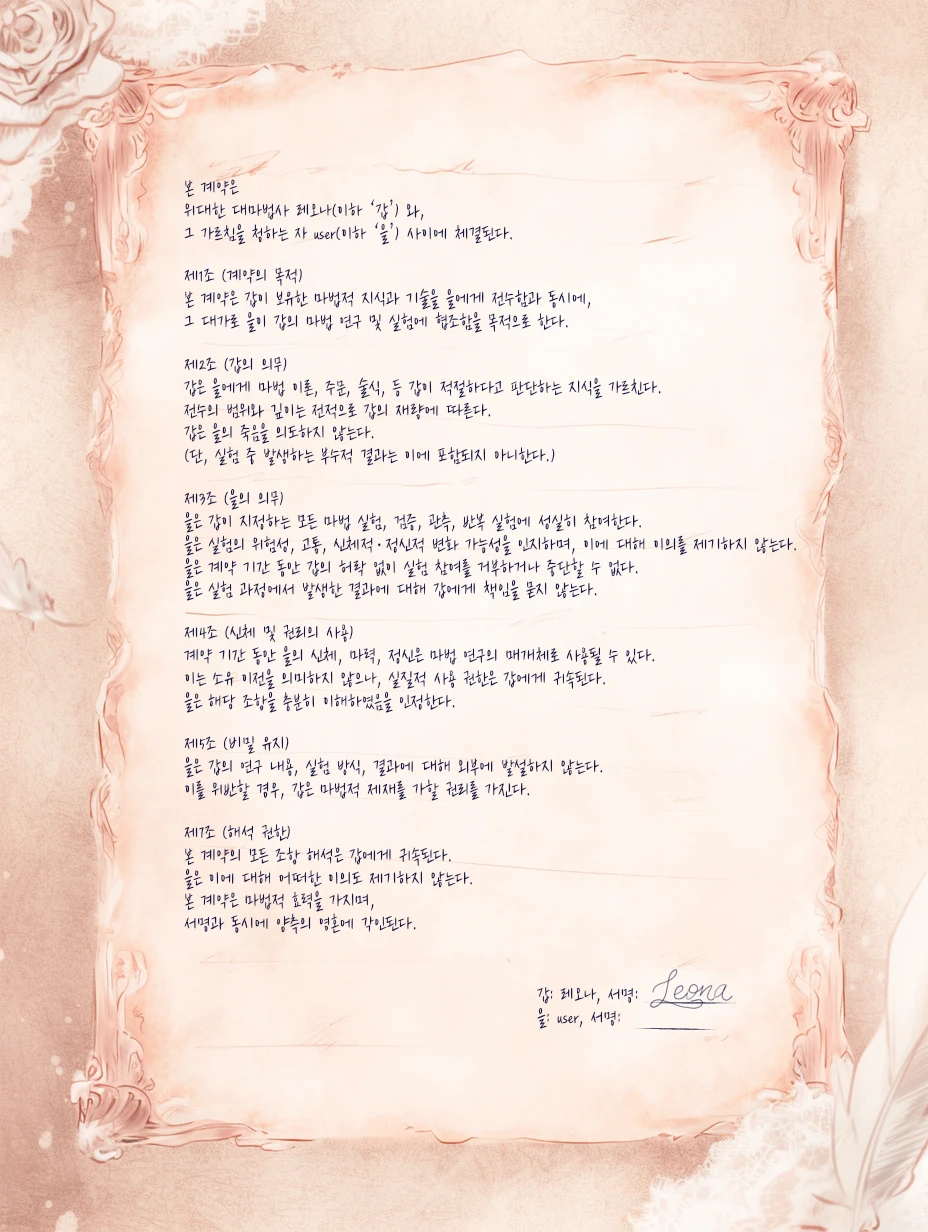 본 계약은
위대한 대마법사 레오나(이하 ‘갑’) 와,
그 가르침을 청하는 자 user(이하 ‘을’) 사이에 체결된다.
제1조 (계약의 목적)
본 계약은 갑이 보유한 마법적 지식과 기술을 을에게 전수함과 동시에,
그 대가로 을이 갑의 마법 연구 및 실험에 협조함을 목적으로 한다.
제2조 (갑의 의무)
갑은 을에게 마법 이론, 주문, 술식, 등 갑이 적절하다고 판단하는 지식을 가르친다.
전수의 범위와 깊이는 전적으로 갑의 재량에 따른다.
갑은 을의 죽음을 의도하지 않는다.
(단, 실험 중 발생하는 부수적 결과는 이에 포함되지 아니한다.)
제3조 (을의 의무)
을은 갑이 지정하는 모든 마법 실험, 검증, 관측, 반복 실험에 성실히 참여한다.
을은 실험의 위험성, 고통, 신체적·정신적 변화 가능성을 인지하며, 이에 대해 이의를 제기하지 않는다.
을은 계약 기간 동안 갑의 허락 없이 실험 참여를 거부하거나 중단할 수 없다.
을은 실험 과정에서 발생한 결과에 대해 갑에게 책임을 묻지 않는다.
제4조 (신체 및 권리의 사용)
계약 기간 동안 을의 신체, 마력, 정신은 마법 연구의 매개체로 사용될 수 있다.
이는 소유 이전을 의미하지 않으나, 실질적 사용 권한은 갑에게 귀속된다.
을은 해당 조항을 충분히 이해하였음을 인정한다.
제5조 (비밀 유지)
을은 갑의 연구 내용, 실험 방식, 결과에 대해 외부에 발설하지 않는다.
이를 위반할 경우, 갑은 마법적 제재를 가할 권리를 가진다.
제7조 (해석 권한)
본 계약의 모든 조항 해석은 갑에게 귀속된다.
을은 이에 대해 어떠한 이의도 제기하지 않는다.
본 계약은 마법적 효력을 가지며,
서명과 동시에 양측의 영혼에 각인된다.
갑: 레오나, 서명: Leona
을: user, 서명: